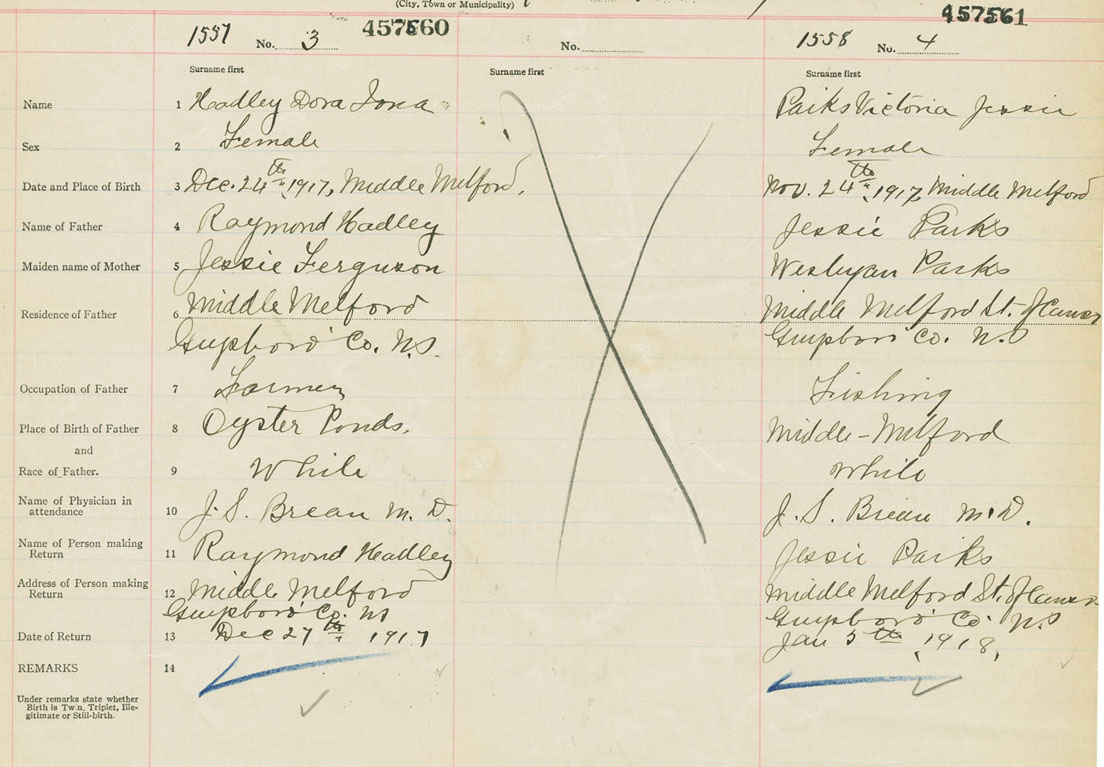 (City, Town or Municipality)
1557 No. 3 457560
No.
1558 No. 4 457561
Surname first
Surname first
Surname first
Name 1 Hadley Dora Iona Parks Victoria Jessie
Sex 2 Female Female
Date and Place of Birth 3 Dec. 24th 1917, Middle Melford. Nov. 24th 1917, Middle Melford
Name of Father 4 Raymond Hadley Jessie Parks
Maiden name of Mother 5 Jessie Ferguson Wesleyan Parks
Residence of Father 6 Middle Melford Middle Melford St. of Canso
Guysboro' Co. N.S. Guysboro' Co. N.S
Occupation of Father 7 Farmer Fishing
Place of Birth of Father 8 Oyster Ponds. Middle-Melford
and
Race of Father. 9 White White
Name of Physician in
attendance 10 J. S. Brean M. D. J. S. Brean M.D.
Name of Person making
Return 11 Raymond Hadley Jessie Parks
Address of Person making
Return 12 Middle Melford Middle Melford St. of Canso
Guysboro' Co. NS Guysboro' Co. N.S
Date of Return 13 Dec 27th 1917 Jan 5th 1918,
REMARKS 14
Under remarks state whether
Birth is Twin, Triplet, Ille-
gitimate or Still-birth.